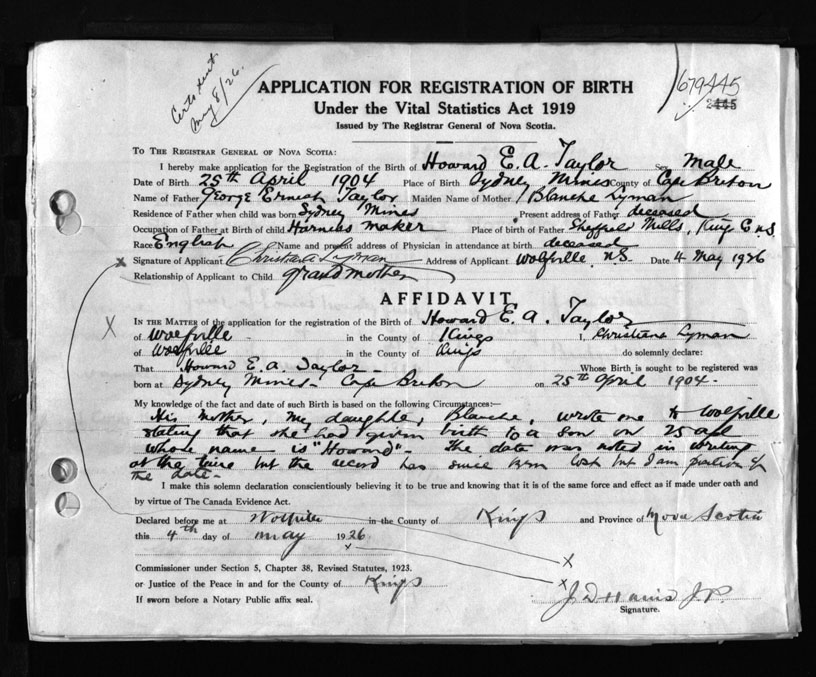 Certs sent.
May 8/26.
679445
2445
APPLICATION FOR REGISTRATION OF BIRTH
Under the Vital Statistics Act 1919
Issued by The Registrar General of Nova Scotia.
To The Registrar General of Nova Scotia:
I hereby make application for the Registration of the Birth of Howard E. A. Taylor Sex Male
Date of Birth 25th April 1904 Place of Birth Sydney Mines County of Cape Breton
Name of Father George Ernest Taylor Maiden Name of Mother Blanche Lyman
Residence of Father when child was born Sydney Mines Present address of Father deceased
Occupation of Father at Birth of child Harness maker Place of birth of Father Sheffield Mills, King Co N.S.
Race English Name and present address of Physician in attendance at birth deceased
Signature of Applicant Christiana Lyman Address of Applicant Wolfville N.S. Date 4 May 1926
Relationship of Applicant to Child grand mother
AFFIDAVIT
In the Matter of the application for the registration of the Birth of Howard E. A. Taylor
of Wolfville in the County of Kings I, Christiana Lyman
of Wolfville in the County of Kings do solemnly declare:
That Howard E. A. Taylor Whose Birth is sought to be registered was
born at Sydney Mines - Cape Breton on 25th April 1904 -
My knowledge of the fact and date of such Birth is based on the following Circumstances:—
His mother, my daughter, Blanche, wrote me to Wolfville
stating that she had given birth to a son on 25 apl
whose name is "Howard" - The date was noted in writing
at the time but the record has since been lost but I am positive of
the date -
I make this solemn declaration conscientiously believing it to be true and knowing that it is of the same force and effect as if made under oath and
by virtue of The Canada Evidence Act.
Declared before me at Wolfville in the County of Kings and Province of Nova Scotia
this 4th day of May 1926
Commissioner under Section 5, Chapter 38, Revised Statutes, 1923.
or Justice of the Peace in and for the County of Kings
If sworn before a Notary Public affix seal.
J. D. Harris J.P.
Signature.